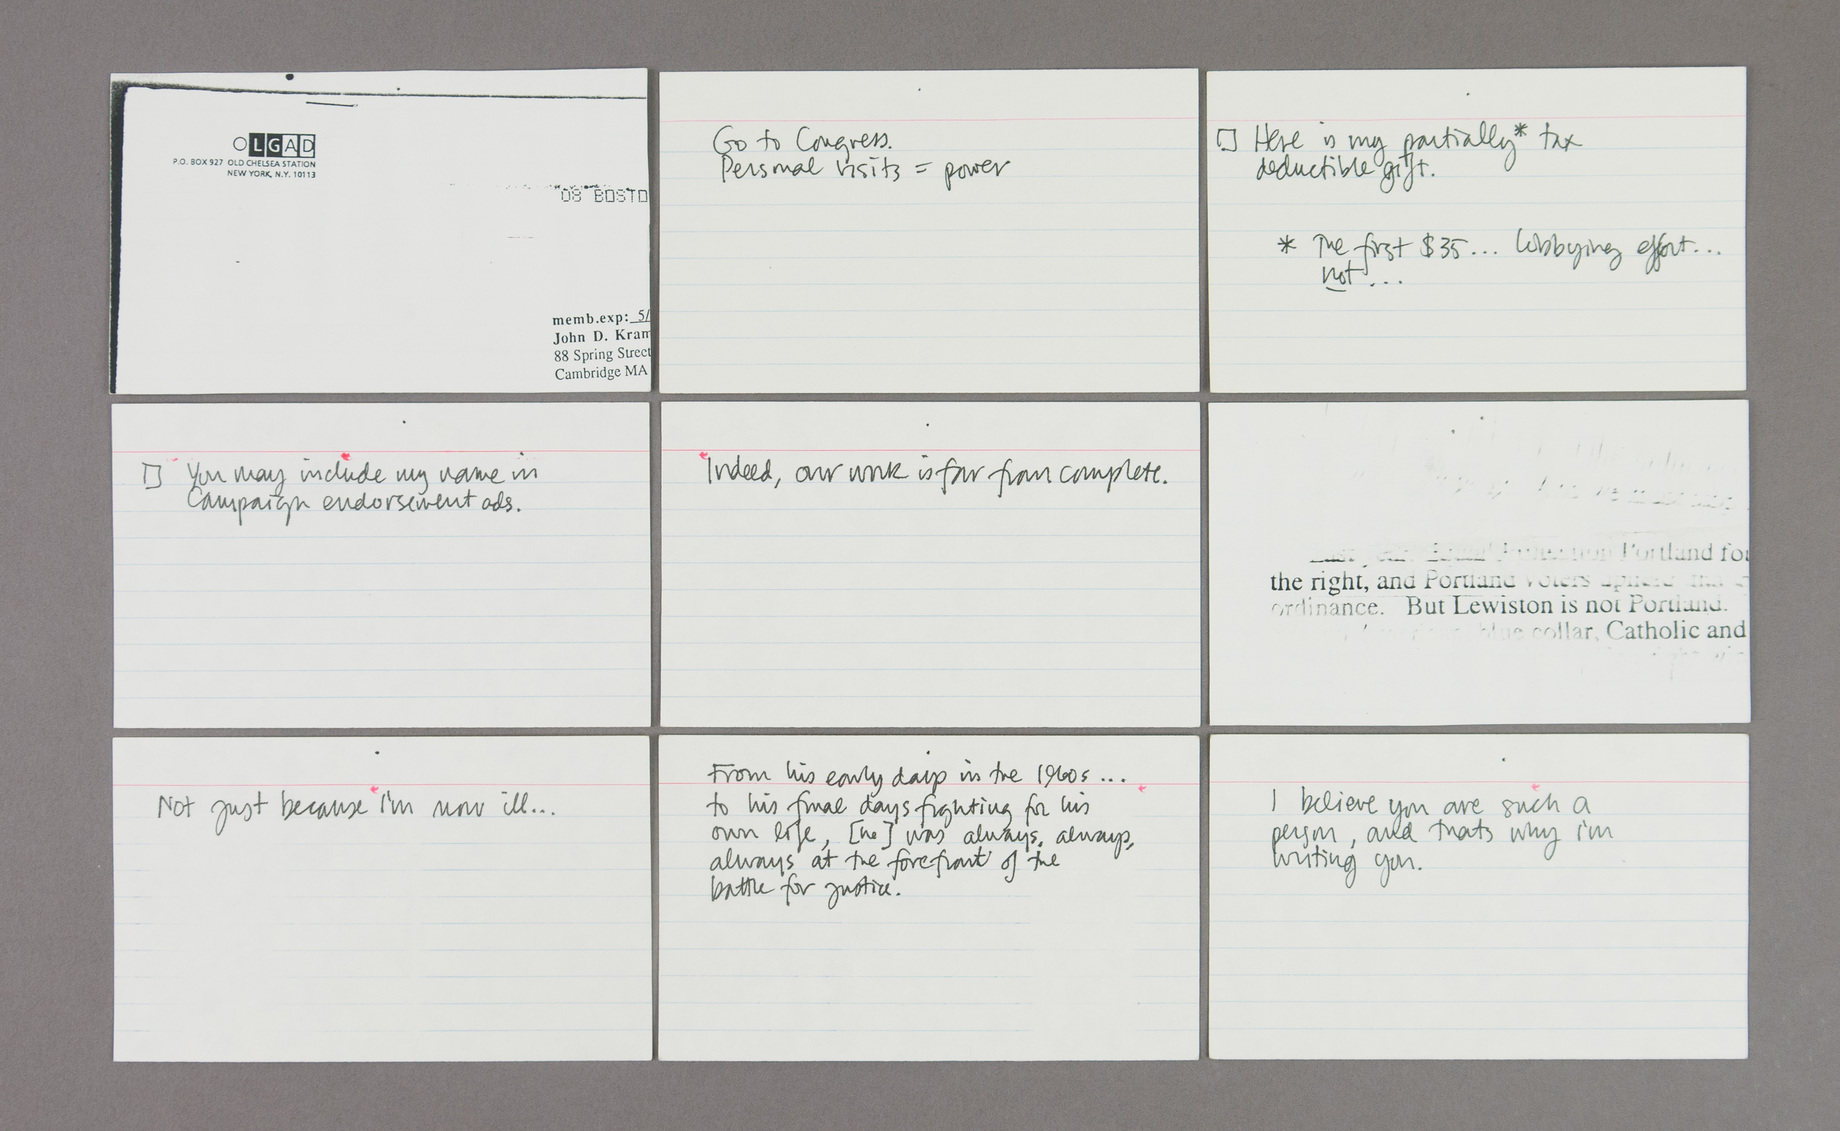 OLGAD
P.O. BOX 927 OLD CHELSEA STATION
NEW YORK, N.Y. 10113
08 BOSTO
memb.exp: 5/
John D. Kram
88 Spring Street
Cambridge MA
Go to Congress.
Personal visits = power
Here is my partially* tax
deductible gift.
* The first $35... lobbying effort...
not...
You may include my name in
Campaign endorsement ads.
Indeed, our work is far from complete.
Portland for
the right, and Portland voters
ordinance. But Lewiston is not Portland.
blue collar, Catholic and
Not just because i'm now ill...
From his early days in the 1960s...
to his final days fighting for his
own life, [he] was always, always,
always at the forefront of the
battle for justice.
I believe you are such a
person, and thats why i'm
writing you.